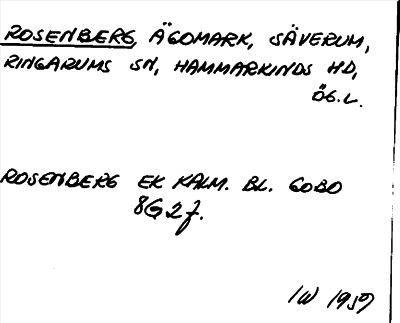 ROSENBERG, ÄGOMARK, SÄVERUM,
RINGARUMS SN, HAMMARKINDS HD,
ÖG.L.
ROSENBERG EK KALM. BL. GOBO
8G 2f.
IW 1959